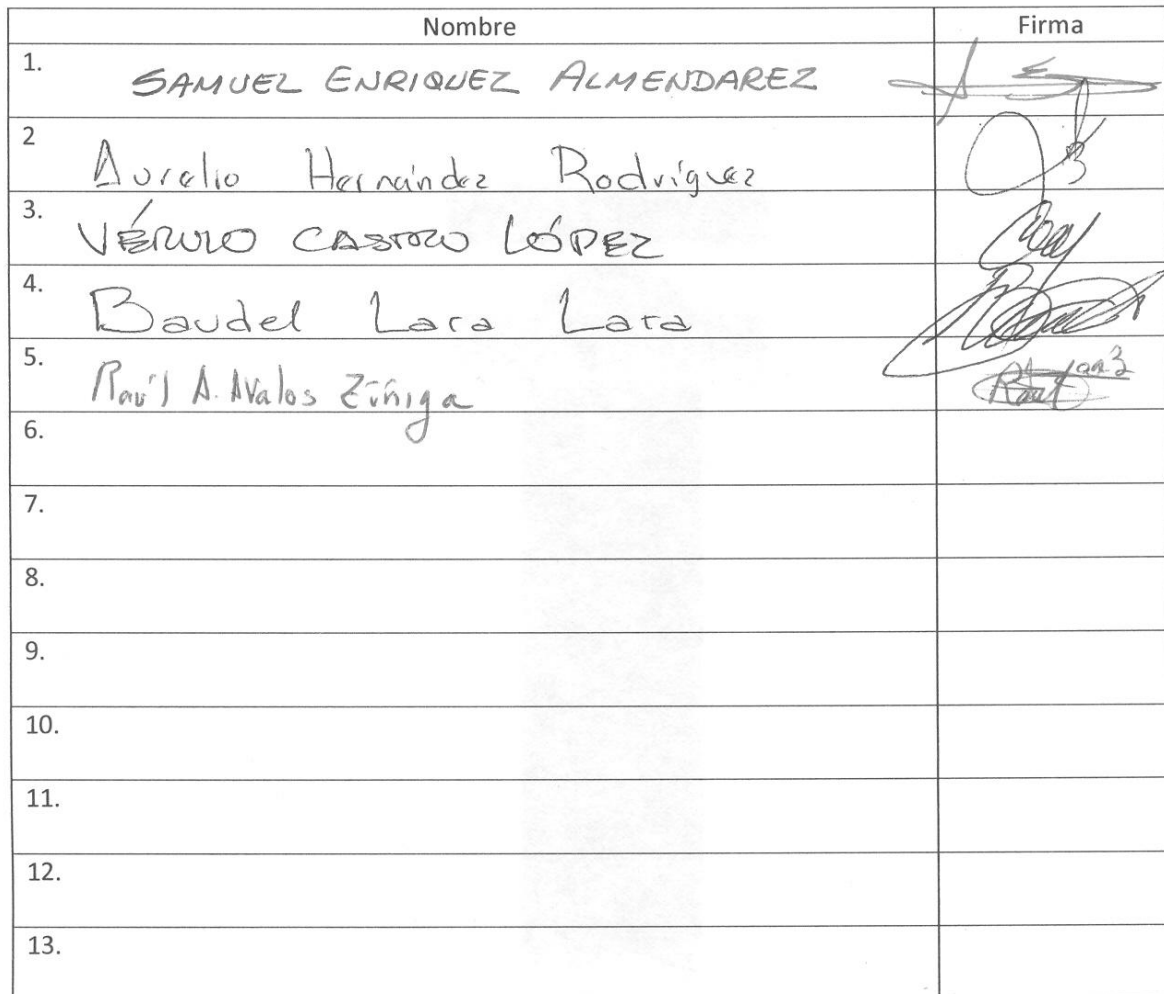 Nombre Firma
1. SAMUEL ENRIQUEZ ALMENDAREZ
2 Aurelio Hernández Rodríguez
3. CASTRO LÓPEZ
4. Baudel Lara Lara
5. Raúl A. Avalos Zúñiga
6.
7.
8.
9.
10.
11.
12.
13.